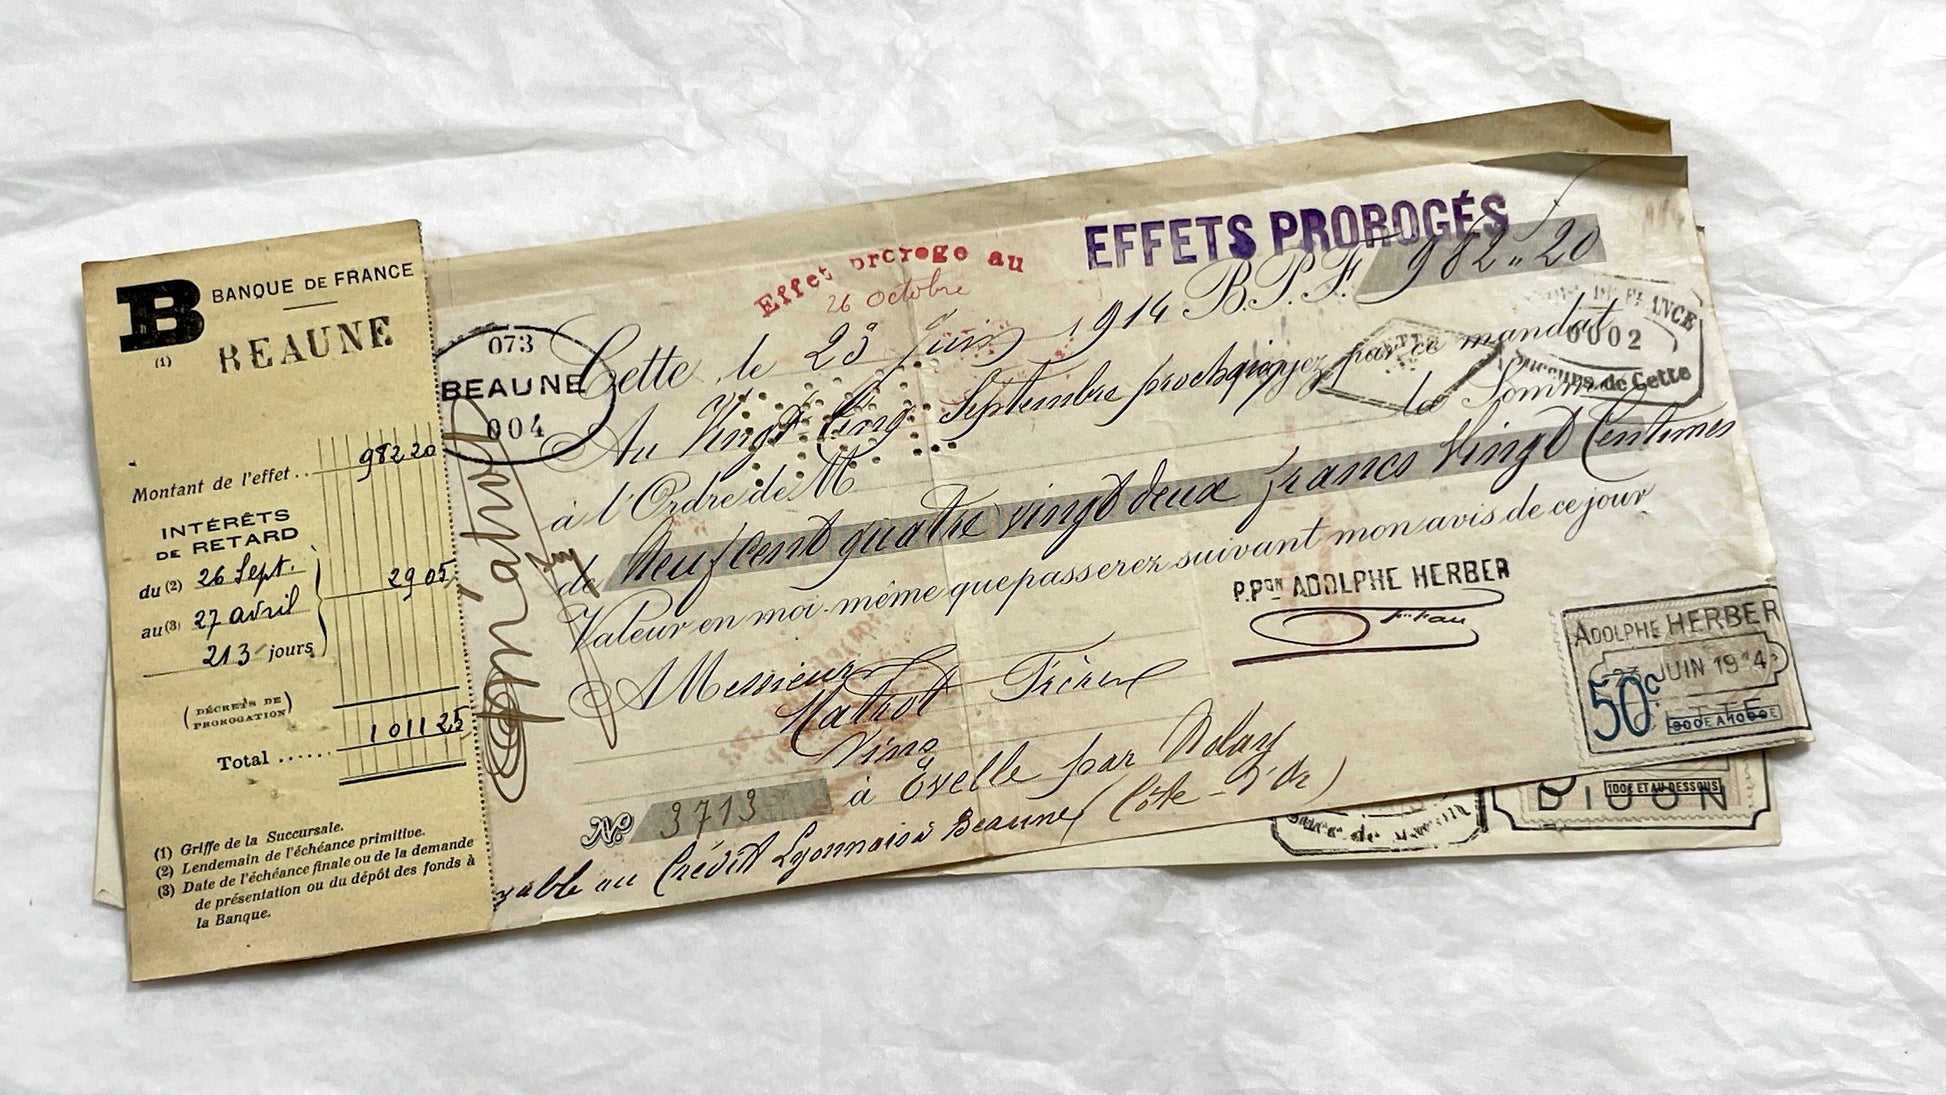 B BANQUE DE FRANCE
(1) BEAUNE
Montant de l'effet .. 982 20
INTÉRÊTS
DE RETARD
du (2) 26 Sept.
au (3) 27 avril
29 05
213 jours
(DÉCRETS DE
PROROGATION)
Total ...... 1011 25
(1) Griffe de la Succursale.
(2) Lendemain de l'échéance primitive.
(3) Date de l'échéance finale ou de la demande
de présentation ou du dépôt des fonds à
la Banque.
EFFETS PROROGÉS
Effet proroge au
26 octobre
073
BEAUNE
004
Cette, le 23 Juin 1914 B.P.F. 982 " 20
Au Vingt Cinq Septembre prochain payez par ce mandat
à l'Ordre de M la Somme
de Neuf cent quatre vingt deux francs Vingt Centimes
Valeur en moi-même que passerez suivant mon avis de ce jour
DE FRANCE
0002
de Cette
P.PON ADOLPHE HERBER
A Messieurs
Matrot Frères
Vins
à Evelle par Nolay
(Côte-d'Or)
No 3713
payable au Crédit Lyonnais à Beaune
ADOLPHE HERBER
23 JUIN 1914
50c
CETTE
900F A 1000F
100F ET AU DESSOUS
DIJON